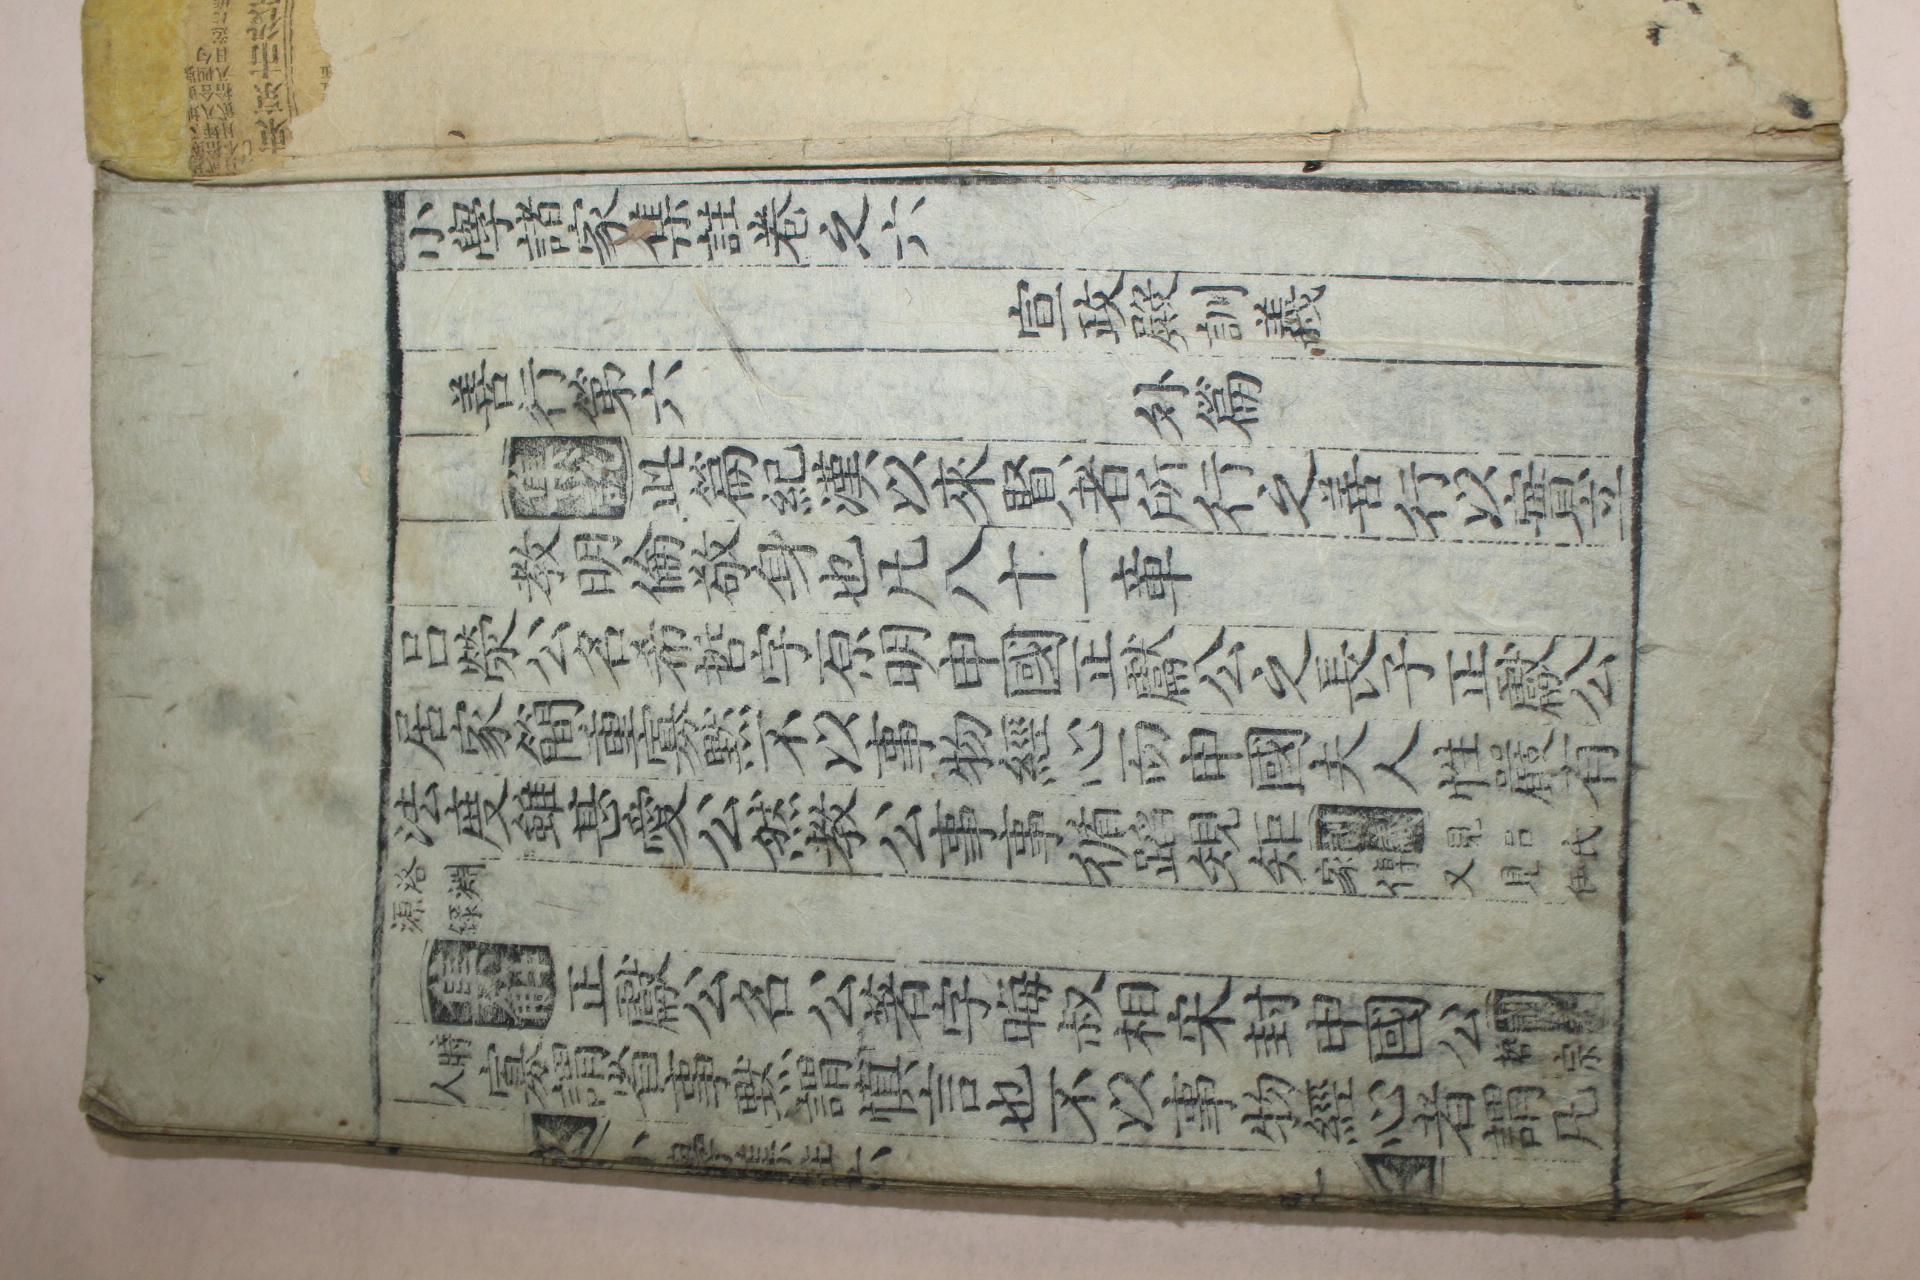 小學諸家集註卷之六
宣政殿訓義
善行第六 外篇
集說 此篇紀漢以來賢者所行之善行以實立
敎明倫敬身也凡八十一章
呂滎公名希哲字原明申國正獻公之長子正獻公
居家簡重寡默不以事物經心而申國夫人性嚴有
法度雖甚愛公然敎公事事循蹈規矩
見呂氏
家傳又見伊
洛淵
源錄
正獻公名公著字晦叔相宋封申國公
哲宗
時人
寡謂省事默謂愼言也不以事物經心者謂凡
小學集註六
一